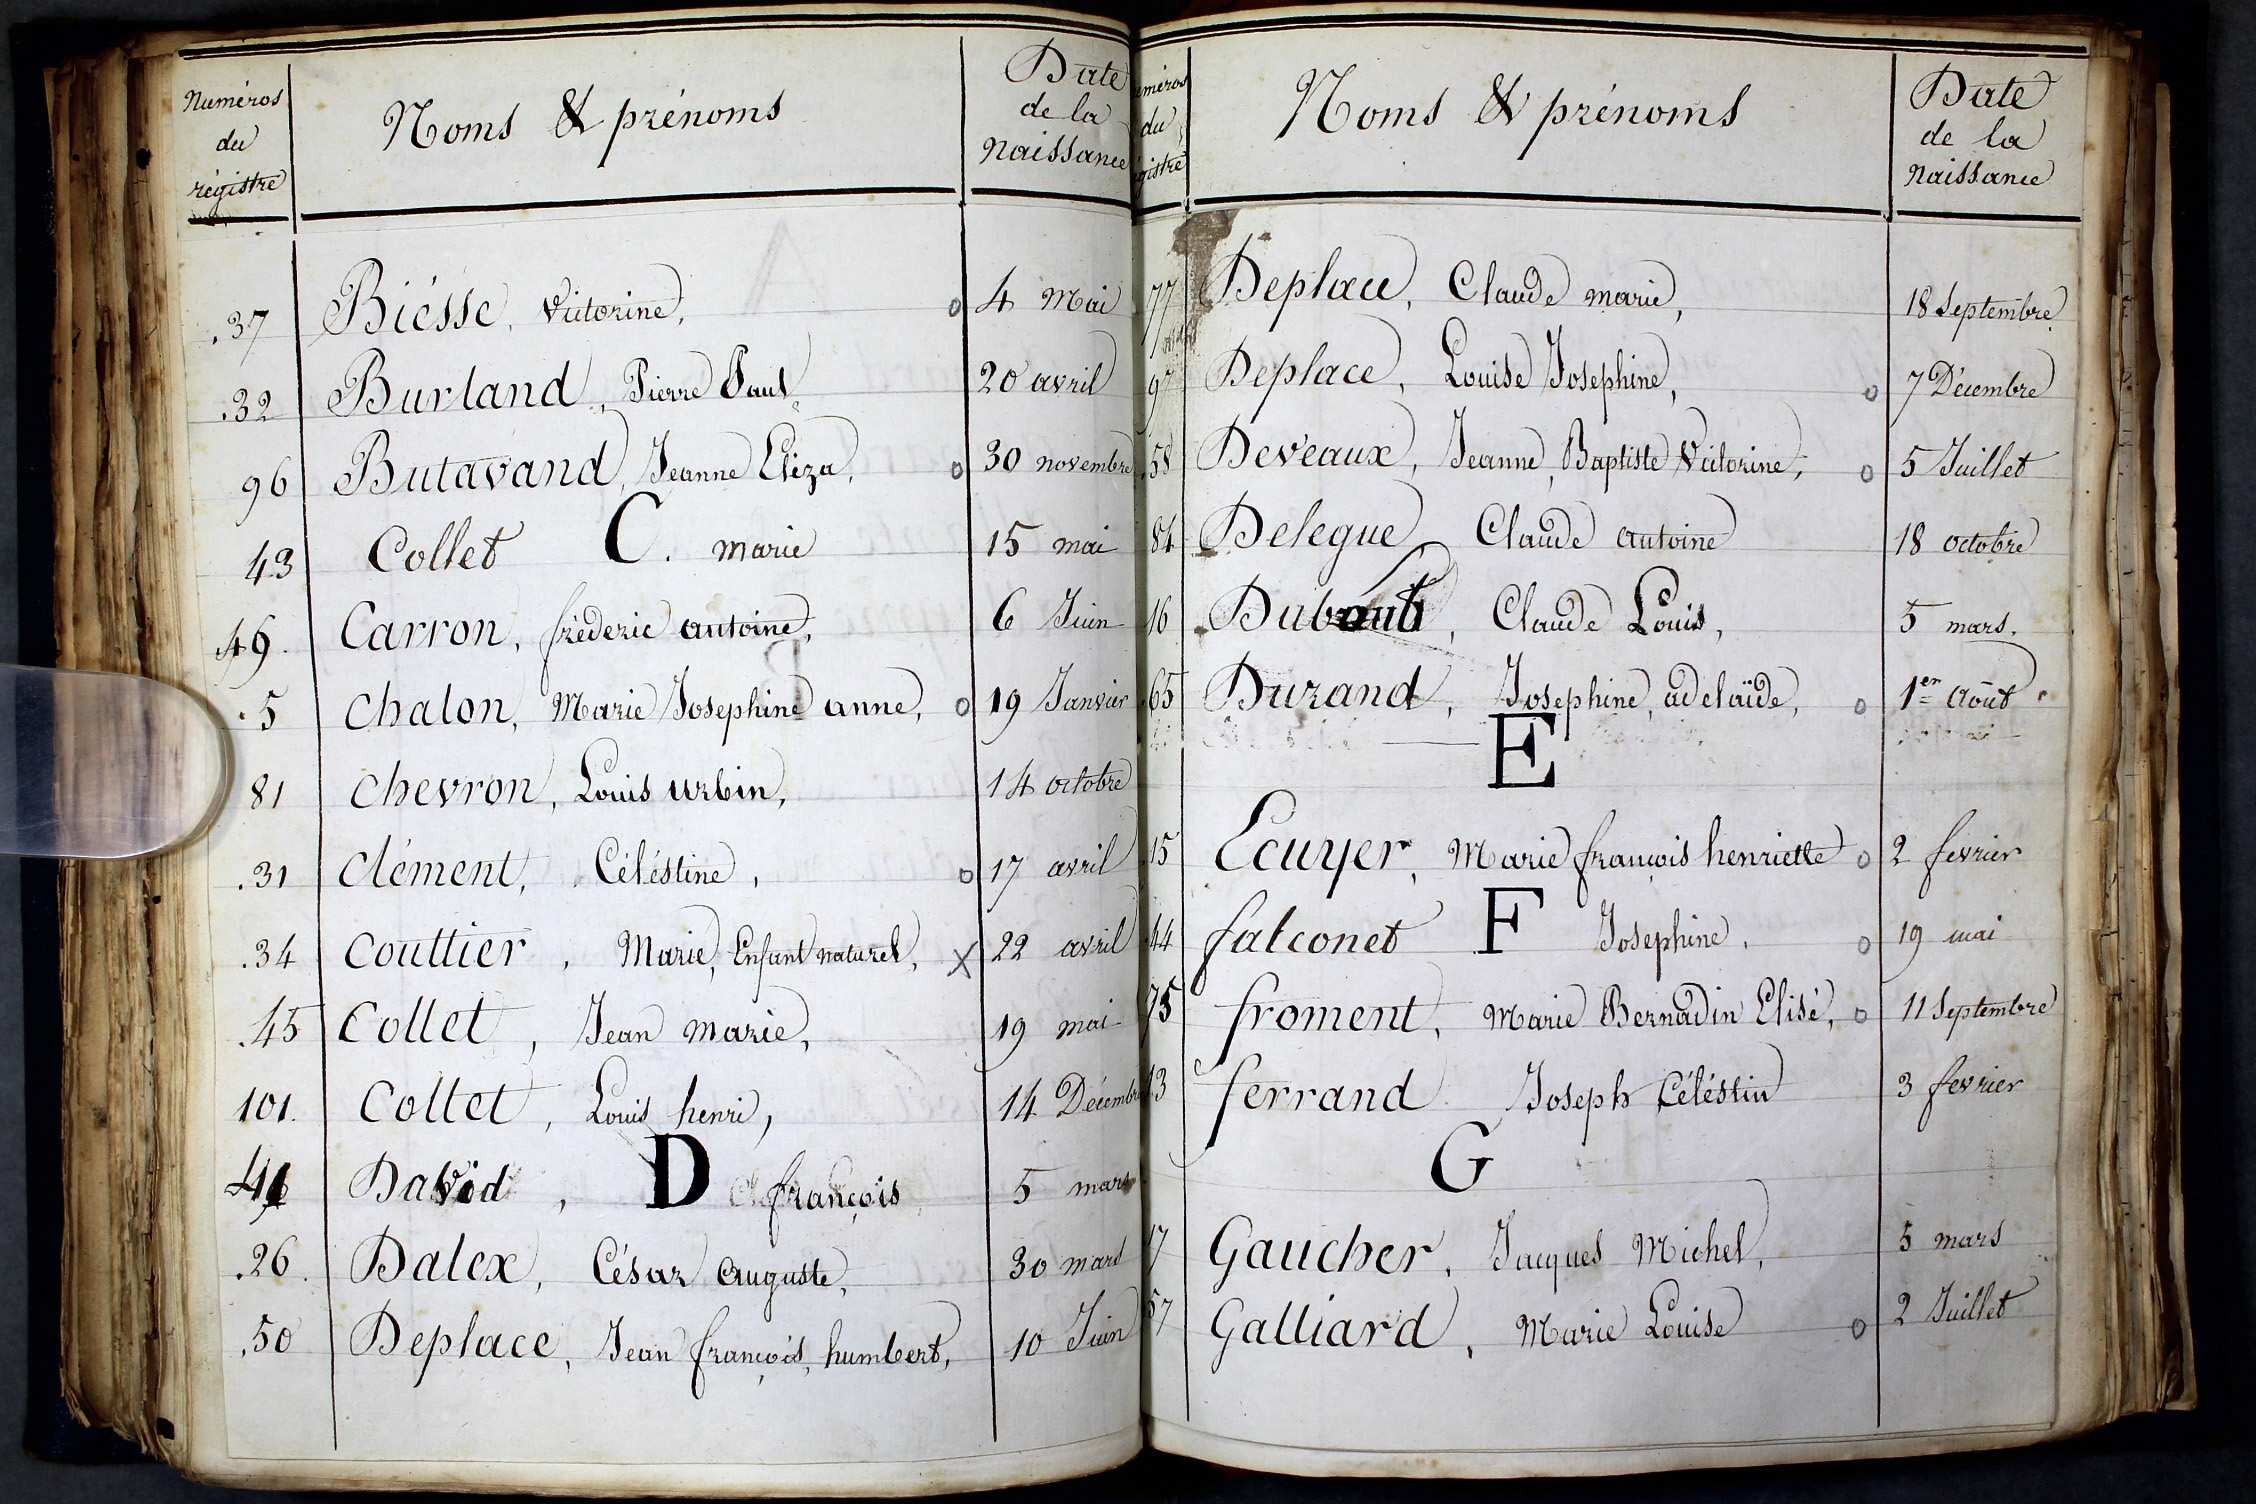 Numéros du régistre
Noms & prénoms
Date de la Naissance
.37 Biésse, Victorine, o 4 Mai
.32 Burland, Pierre Paul, 20 avril
96 Butavand, Jeanne Eliza, o 30 novembre
C.
43 Collet marie 15 mai
49. Carron, fréderic antoine, 6 Juin
.5 Chalon, Marie Josephine anne, o 19 Janvier
81 Chevron, Louis urbin, 14 octobre
.31 Clément, Céléstine, o 17 avril
.34 Couttier, Marie, Enfant naturel, x 22 avril
.45 Collet, Jean marie, 19 mai
101. Collet, Louis henri, 14 Décembre
D
David, françois 5 mars
.26. Dalex, César auguste, 30 mars
.50 Deplace, Jean françois, humbert, 10 Juin
uméros du gistre
Noms & prénoms
Date de la Naissance
77 Deplace, Claude marie, 18 Septembre
97 Deplace, Louise Josephine, o 7 Décembre
.58 Deveaux, Jeanne, Baptiste Victorine, o 5 Juillet
84 Delegue, Claude antoine 18 octobre
16 Claude Louis, 5 mars.
65 Durand, Josephine, adelaïde, o 1er Août
E
15 Ecuyer, Marie françois henriette o 2 fevrier
F
44 falconet Josephine, o 19 mai
75 froment, Marie Bernadin Elisé, o 11 Septembre
13 ferrand Joseph Céléstin 3 fevrier
G
17 Gaucher, Jacques Michel, 5 mars
57 Galliard, Marie Louise o 2 Juillet